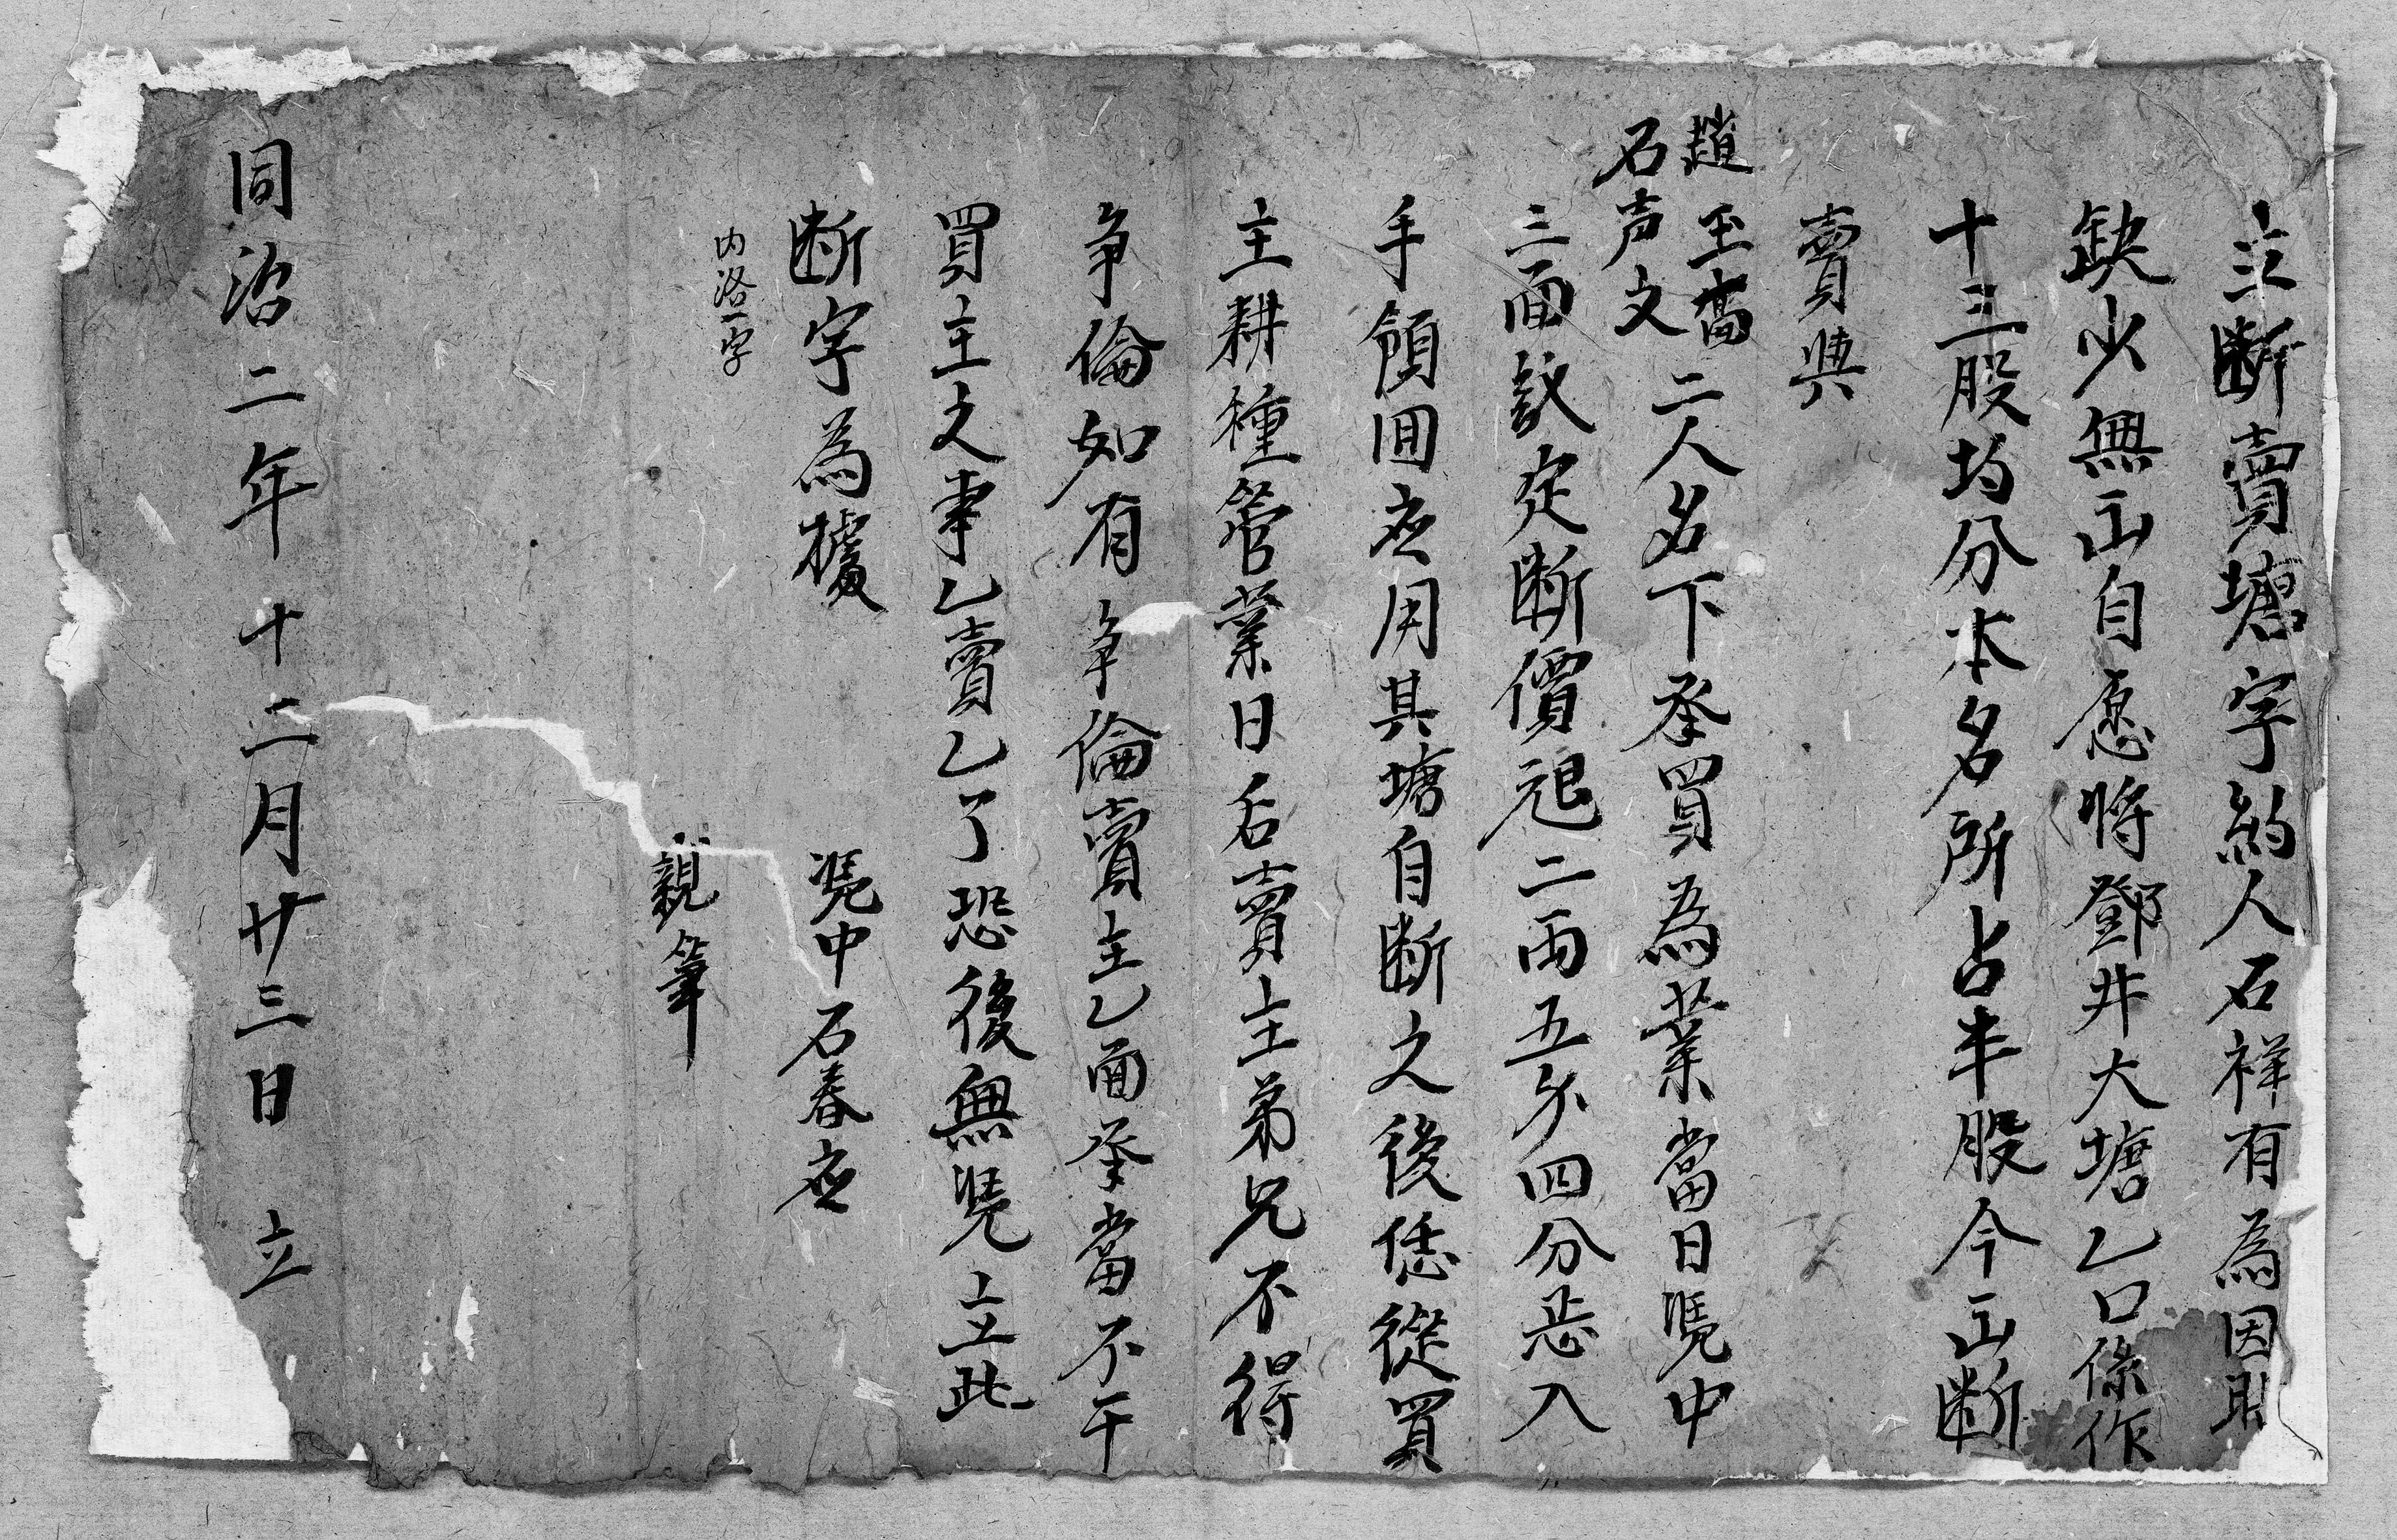 立断賣塘字約人石祥有為因
缺少無□自愿將鄧井大塘乙口係作
十三股均分本名所占半股今□断
賣與
趙至喬
石声文
二人名下承買為業當日凴中
三面議定断價艮二両五錢四分悉入
手領回应用其塘自断之後恁從買
主耕種管業日后賣主弟兄不得
争倫如有争倫賣主乙面承當不干
買主之事乙賣乙了恐後無凴立此
断字為據
內洛一字
凴中石春应
親筆
同治二年十二月廿三日立